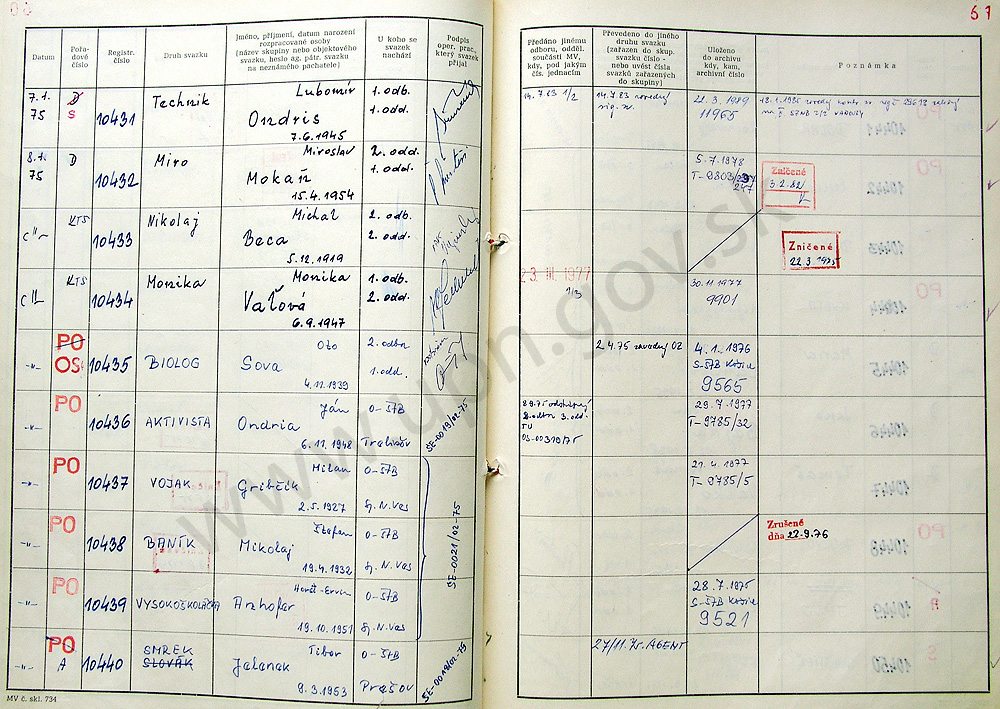 61
Datum
Pořa-
dové
číslo
Registr.
číslo
Druh svazku
Jméno, příjmení, datum narození
rozpracované osoby
(název skupiny nebo objektového
svazku, heslo ag. pátr. svazku
na neznámého pachatele)
U koho se
svazek
nachází
Podpis
oper. prac.,
který svazek
přijal
Předáno jinému
odboru, odděl.
součásti MV,
kdy, pod jakým
čís. jednacím
Převedeno do jiného
druhu svazku
(zařazen do skup.
svazku číslo -
nebo uvést čísla
svazků zařazených
do skupiny)
Uloženo
do archivu
kdy, kam,
archivní číslo
Poznámka
7.1.
75
S
10431
Technik
Lubomír
Ondris
7.6.1945
1. odb.
1. odd.
14.7.83 1/2
14.7.83
21.3.1989
11965
8.1.
75
D
10432
Miro
Miroslav
Mokaň
15.4.1954
2. odd.
1. odd.
5.7.1978
T-9803/
247
Zničené
3.2.82
KTS
10433
Nikolaj
Michal
Beca
5.12.1919
2. odb.
2. odd.
Zničené
22.3.1975
KTS
10434
Monika
Monika
Vaľová
6.9.1947
1. odb.
2. odd.
23. III. 1977
1/3
30.11.1977
9901
PO
OS
10435
BIOLOG
Oto
Sova
4.11.1939
2. odbor
1. odd.
2.4.75 zavedený 02
4.1.1976
S-ŠTB Košice
9565
PO
-"-
10436
AKTIVISTA
Ján
Ondria
6.11.1948
O-ŠTB
Trebišov
SE-0019/02-75
OS-00310/75
29.7.1977
T-9785/32
PO
-"-
10437
VOJAK
Milan
Gribčik
2.5.1927
O-ŠTB
Sp. N. Ves
21.4.1977
T-9785/5
PO
-"-
10438
BANÍK
Štefan
Mikolaj
19.4.1932
O-ŠTB
Sp. N. Ves
SE-0021/02-75
Zrušené
dňa 22.9.76
PO
-"-
10439
VYSOKOŠKOLÁČKA
Horst-Ervin
Arzhofer
19.10.1951
O-ŠTB
Sp. N. Ves
28.7.1975
S-ŠTB Košice
9521
PO
-"-
A
10440
SMREK
SLOVÁK
Tibor
Jalenak
9.3.1953
O-ŠTB
Prešov
SE-0019/02-75
27/11. 75. AGENT
MV č. skl. 734
www.upn.gov.sk